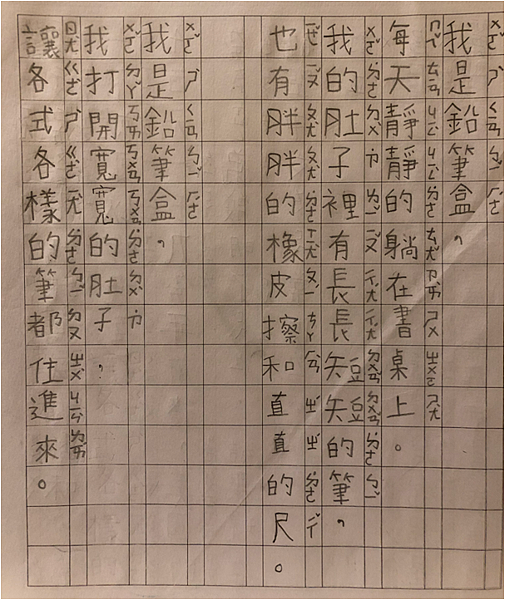 我是鉛筆盒，
每天靜靜的躺在書桌上。
我的肚子裡有長長短短的筆，
也有胖胖的橡皮擦和直直的尺。
我是鉛筆盒，
我打開寬寬的肚子，
讓各式各樣的筆都住進來。